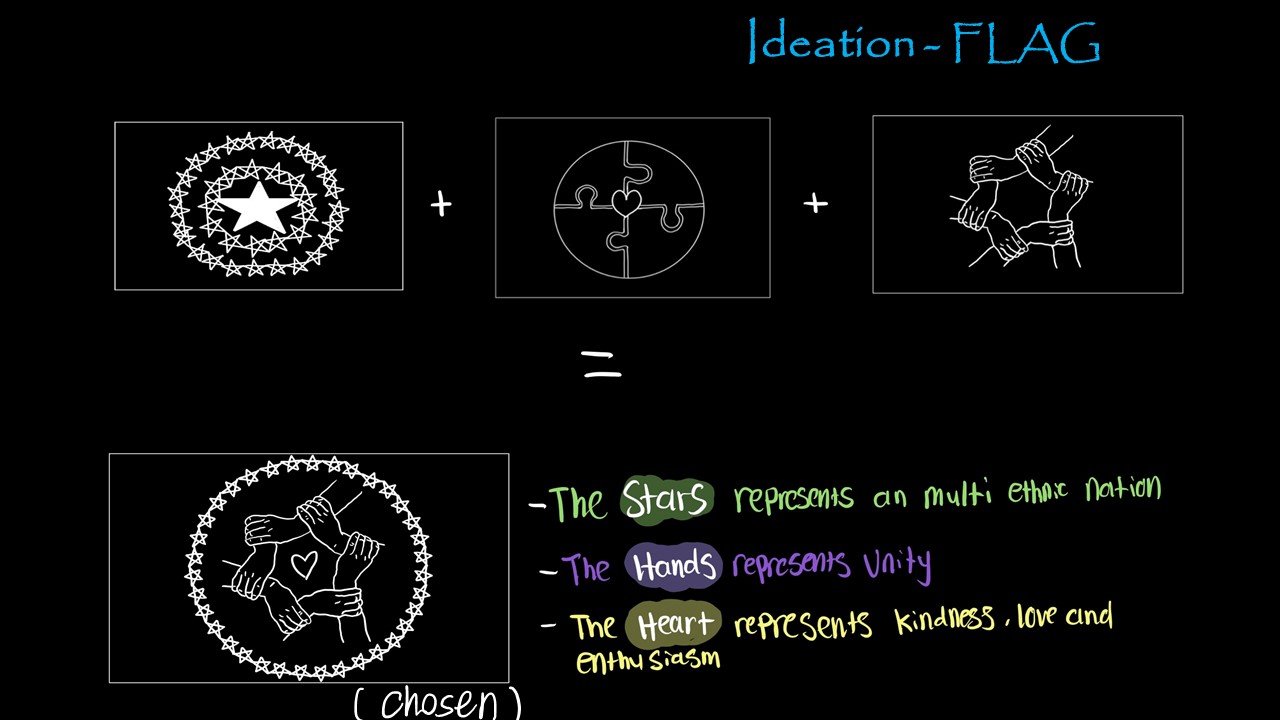 Ideation - FLAG
+ +
=
- The Stars represents an multi ethnic nation
- The Hands represents Unity
- The Heart represents kindness, love and
enthusiasm
(chosen)